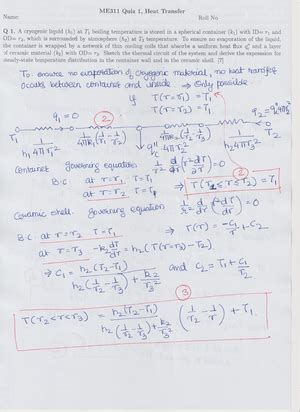 ME311 Quiz 1, Heat Transfer
Name: Roll No
Q 1. A cryogenic liquid (h₁) at T₁ boiling temperature is stored in a spherical container (k₁) with ID= r₁ and
OD= r₂, which is surrounded by atmosphere (h₂) at T₂ temperature. To ensure no evaporation of the liquid,
the container is wrapped by a network of thin cooling rods that absorbs a uniform heat flux q'' and a layer
of ceramic material (k₂) with OD= r₃. Sketch the thermal circuit of the system and derive the expression for
steady-state temperature distribution in the container wall and in the ceramic shell. [7]
To ensure no evaporation of cryogenic material, no heat transfer
occurs between container and inside ⇒ Only possible
if T(r=r₁) = T₁
T(r=r₂) = T₁
q₁=0 (2)
T₁ T₂
1/h₁4πr₁² 1/4πk₁ (1/r₁ - 1/r₂) 1/4πk₂ (1/r₂ - 1/r₃) 1/h₂4πr₃²
Container Governing equation 1/r² d/dr (r² dT/dr) = 0
B.C. at r=r₁ T=T₁
at r=r₂ T=T₁ ⇒ T(r₁≤r≤r₂) = T₁ (2)
Ceramic shell Governing equation 1/r² d/dr (r² dT/dr) = 0
B.C. at r=r₂ T=T₁ ⇒ T(r) = -C₁/r + C₂
at r=r₃ -k₂ dT/dr = h₂(T(r=r₃)-T₂)
⇒ C₁ = h₂(T₂-T₁) / (h₂(1/r₂ - 1/r₃) + k₂/r₃²) and C₂ = T₁ + C₁/r₂
(3)
T(r₂<r<r₃) = h₂(T₂-T₁) / (h₂(1/r₂ - 1/r₃) + k₂/r₃²) (1/r₂ - 1/r) + T₁